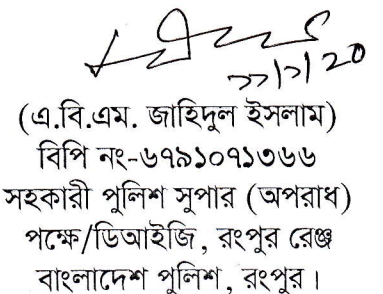 (এ.বি.এম. জাহিদুল ইসলাম)
বিপি নং-৬৭৯১০৭১৩৬৬
সহকারী পুলিশ সুপার (অপরাধ)
পক্ষে/ডিআইজি, রংপুর রেঞ্জ
বাংলাদেশ পুলিশ, রংপুর।